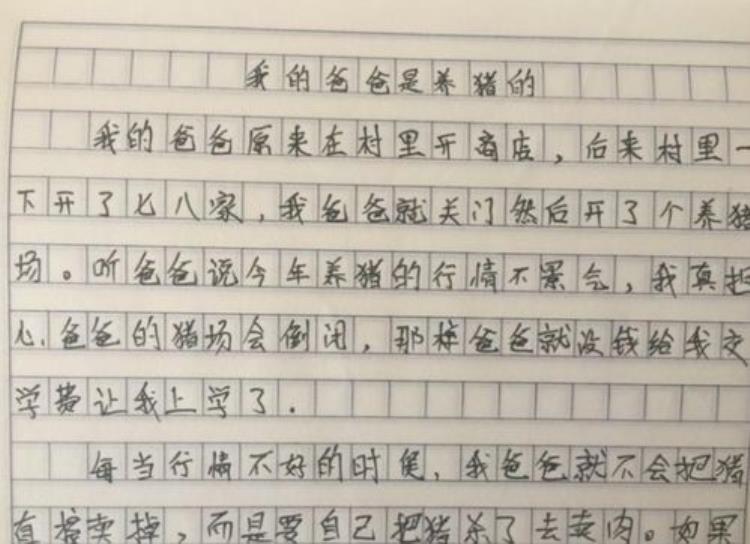 我的爸爸是养猪的
我的爸爸原来在村里开商店，后来村里一
下开了七八家，我爸爸就关门然后开了个养猪
场。听爸爸说今年养猪的行情不景气，我真担
心.爸爸的猪场会倒闭，那样爸爸就没钱给我交
学费让我上学了.
每当行情不好的时候，我爸爸就不会把猪
直接卖掉，而是要自己把猪杀了去卖肉。如果